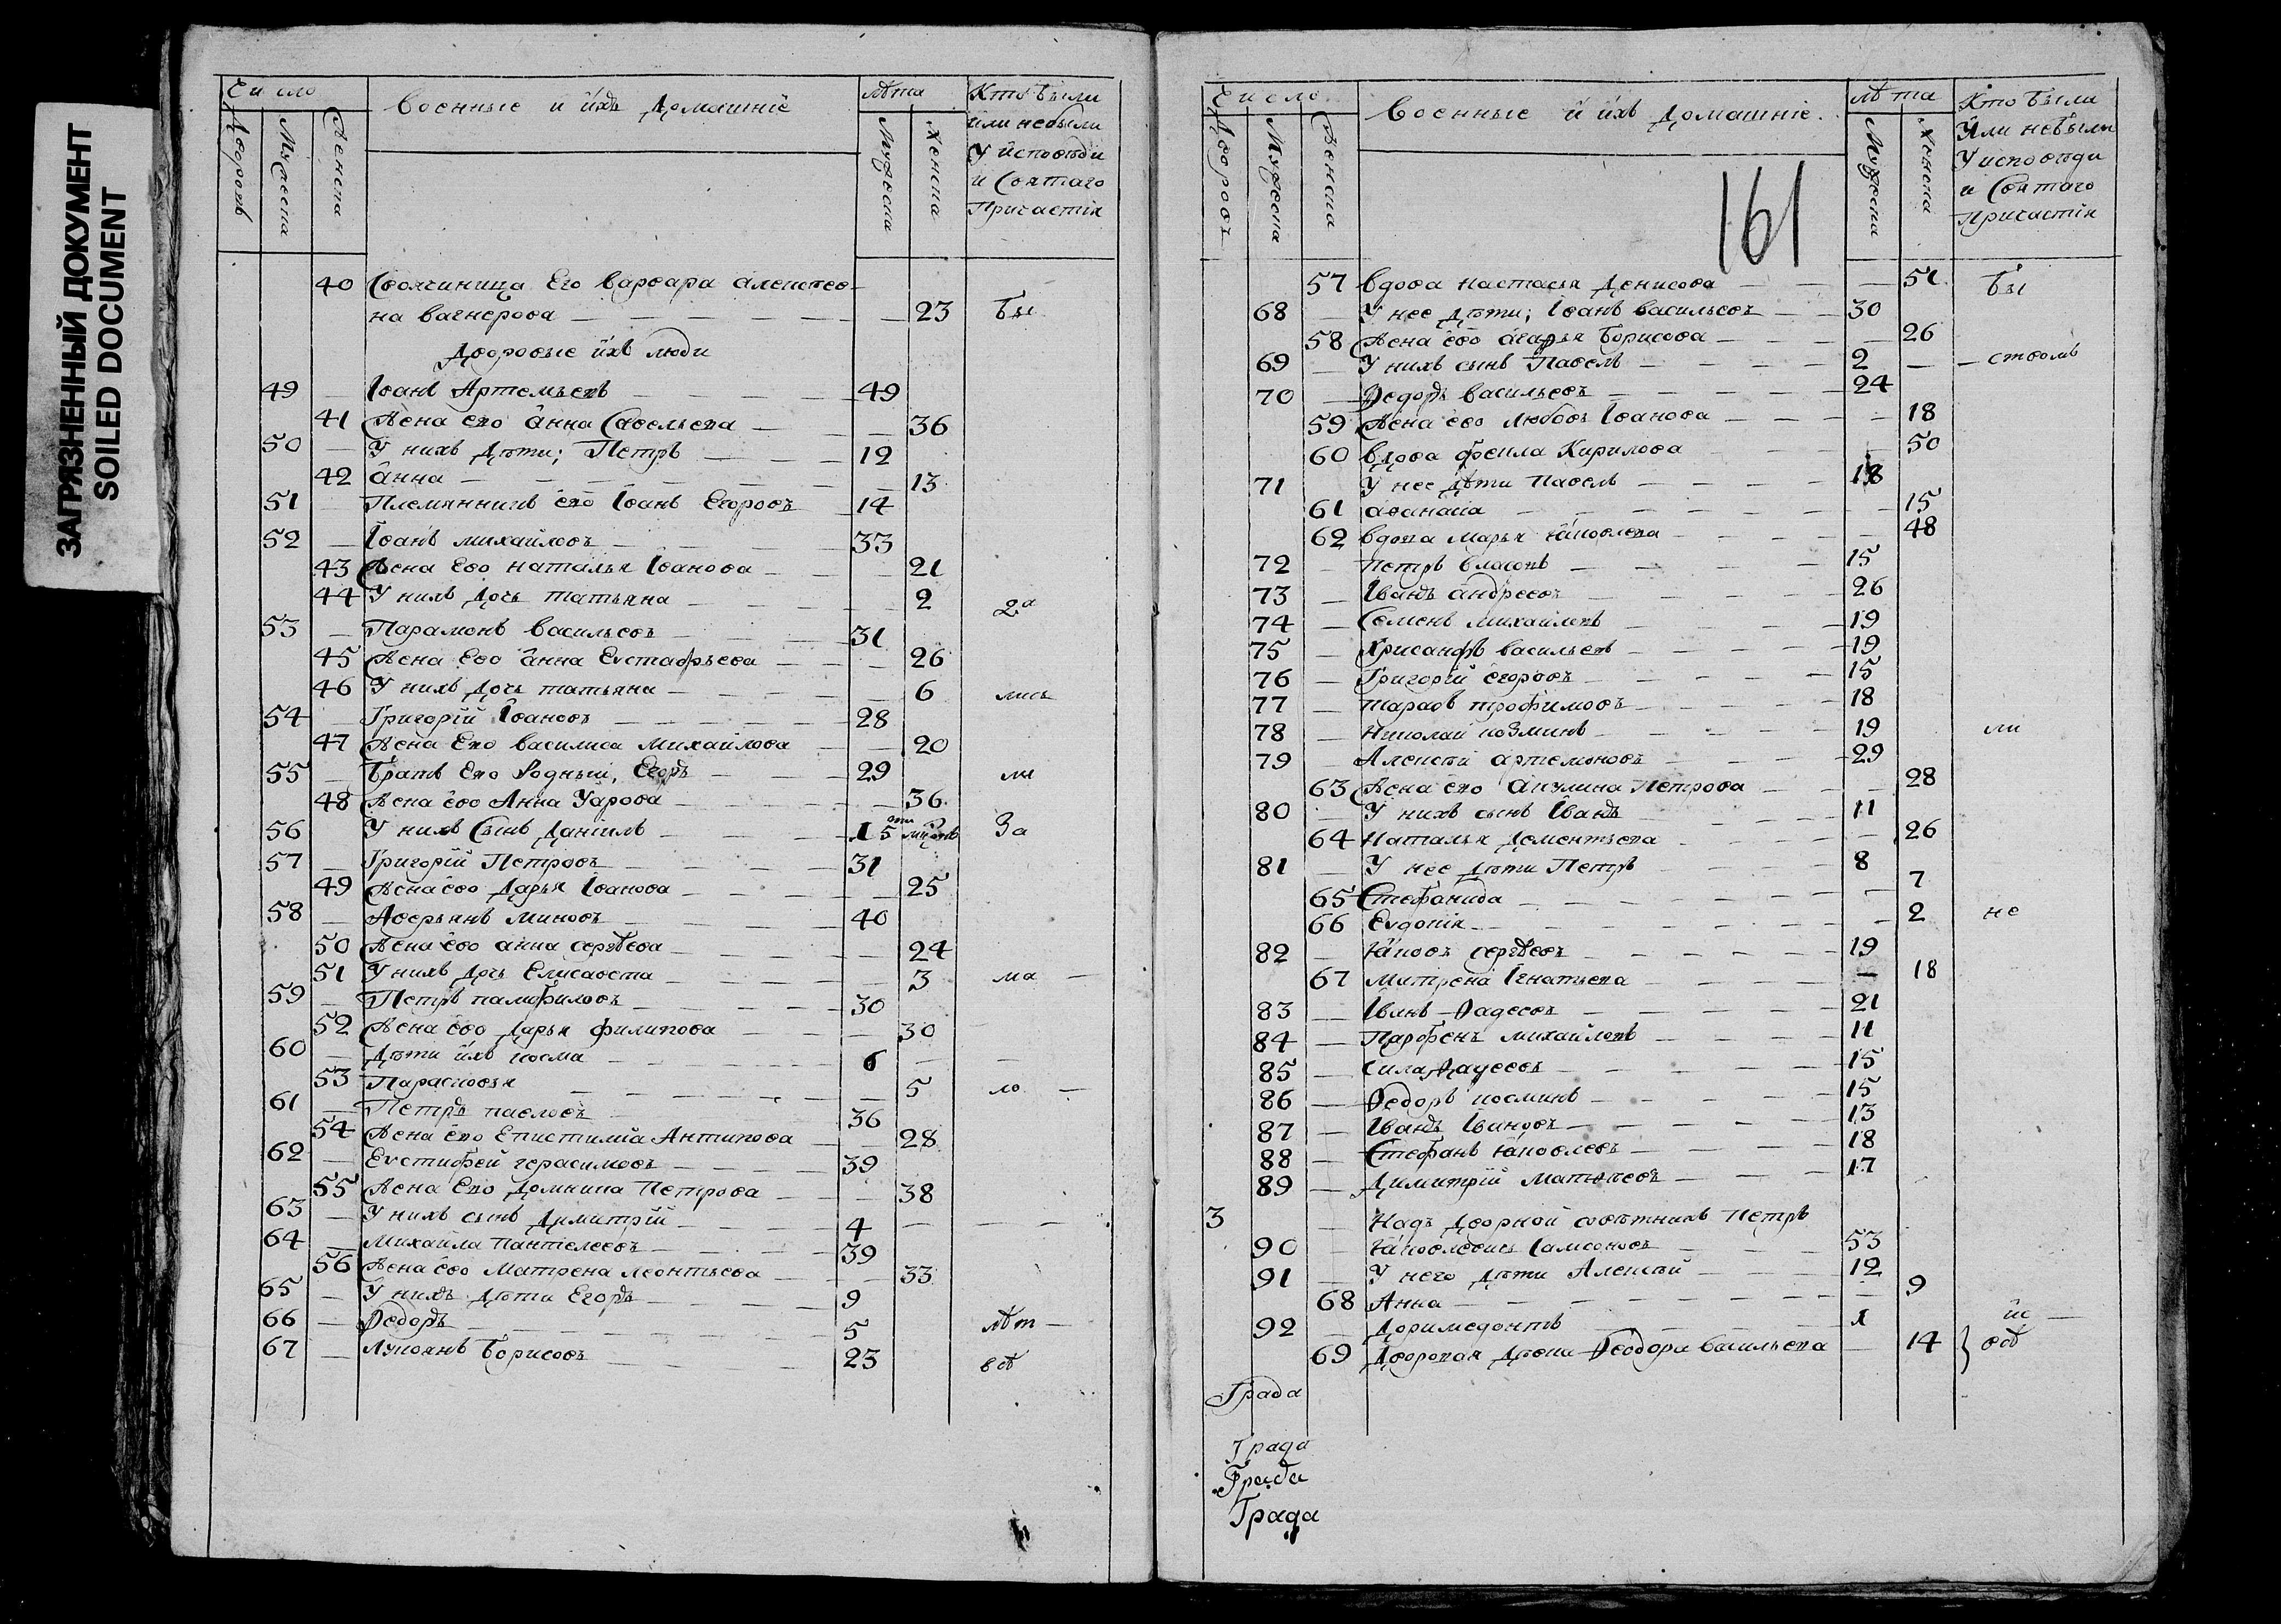 ЗАГРЯЗНЕННЫЙ ДОКУМЕНТ
SOILED DOCUMENT
Число
Военные и ихъ Домашніе
лѣта
Кто были
или небыли
У исповѣди
и Святаго
Причастія
Дворовъ
Мужеска
Женска
Мужеска
Женска
40 Своячиница Его варвара алексѣев
на вагнерова 23 бы
Дворовые ихъ люди
49 Іванъ Артемьевъ 49
41 Жена его Анна Савельева 36
50 У нихъ дѣти; Петръ 12
42 Анна 13
51 Племянникъ его Іванъ Егоровъ 14
52 Іванъ михайловъ 33
43 Жена Ево наталья Іванова 21
44 У нихъ дочь татьяна 2
53 Парамонъ васильевъ 31
45 Жена Ево Анна Евстафьева 26
46 У нихъ дочь татьяна 6 лись
54 Григорій Івановъ 28
47 Жена Ево василиса михайлова 20
55 Братъ Ево Родный, Егоръ 29 ли
48 Жена ево Анна Уарова 36
56 У нихъ Сынъ Даніилъ За
57 Григорій Петровъ 31
49 Жена ево Дарья Іванова 25
58 Аверьянъ миновъ 40
50 Жена ево анна сергѣева 24
51 У нихъ дочь Елисавета 3 ма
59 Петръ памфиловъ 30
52 Жена ево Дарья филипова 30
60 Дѣти ихъ косма 6
53 Парасковья 5 ло
61 Петръ павловъ 36
54 Жена ево Епистимія Антипова 28
62 Евстифей герасимовъ 39
55 Жена Ево Домника Петрова 38
63 У нихъ сынъ Димитрій 4
64 Михайла Пантелеевъ 39
56 Жена ево Матрена леонтьева 33
65 У нихъ дѣти Егоръ 9
66 Ѳедоръ 5 лѣт
67 Лукоянъ Борисовъ 23
Число
Военные и ихъ Домашніе.
лѣта
Кто были
Или небыли
У исповѣди
и Святаго
Причастія
Дворовъ
Мужеска
Женска
161
Мужеска
Женска
57 вдова настасья Денисова 51 бы
68 У нее дѣти; Іванъ васильевъ 30
58 Жена ево агарья борисова 26
69 У нихъ сынъ Павелъ 2 ством
70 Ѳедоръ васильевъ 24
59 Жена ево любовъ Іванова 18
60 вдова фекла Кирилова 50
71 У нее дѣти павелъ 18
61 афанасіа 15
62 вдова марья Яковлева 48
72 петръ власовъ 15
73 Іванъ андреевъ 26
74 Семенъ михайловъ 19
75 Хрисанфъ васильевъ 19
76 Григорій егоровъ 15
77 тарасъ трофимовъ 18
78 Николай козминъ 19 ли
79 Алексѣй артемоновъ 29
63 Жена ево акулина Петрова 28
80 У нихъ сынъ Іванъ 11
64 Наталья Дементьева 26
81 У нее дѣти Петръ 8
65 Стефанида 7
66 Евдокія 2 не
82 Яковъ сергѣевъ 19
67 Матрена Игнатьева 18
83 Іванъ Фадеевъ 21
84 Парфенъ михайловъ 11
85 Сила Фадеевъ 15
86 Ѳедоръ косминъ 15
87 Іванъ Івановъ 13
88 Стефанъ Яковлевъ 18
89 Димитрій матвѣевъ 17
3 Надъ дворной совѣтникъ Петръ
90 Яковлевичъ Самсоновъ 53
91 У него дѣти Алексѣй 12
68 Анна 9
92 Доримедонтъ 1
69 Дворовая дѣвка Ѳеодора васильева 14
Града
Града
Града
Града